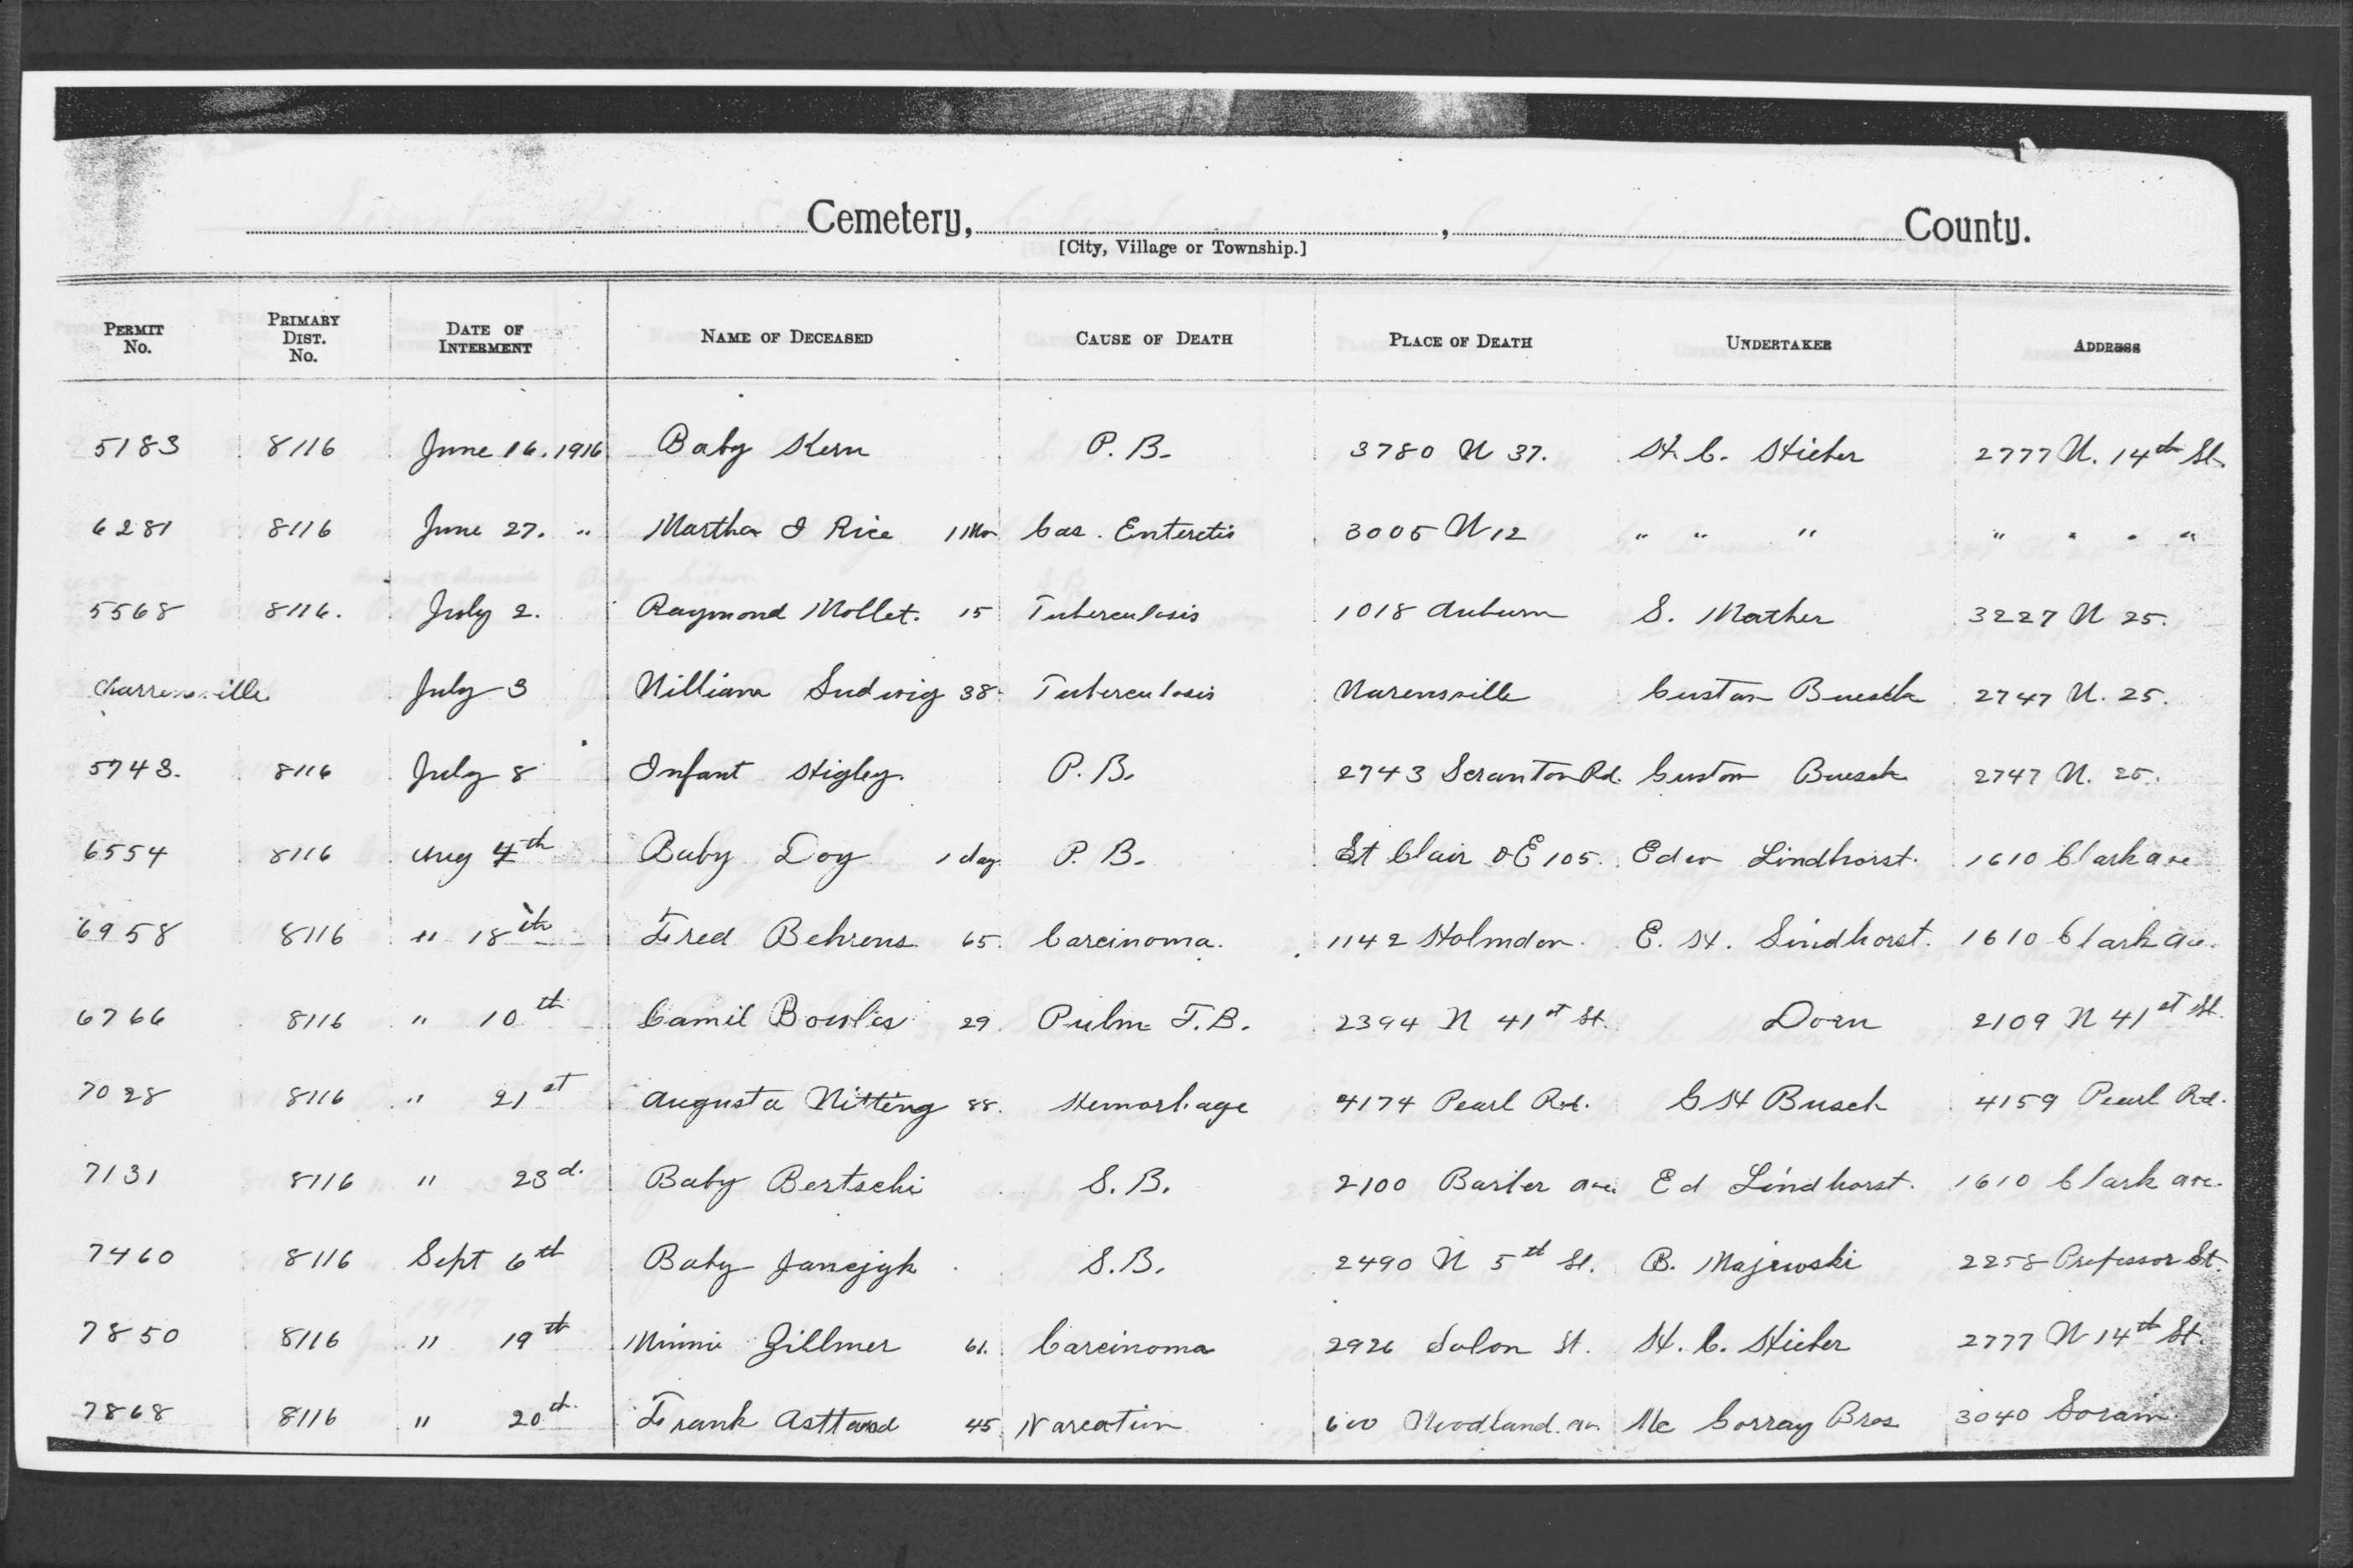 Cemetery, , County.
[City, Village or Township.]
PERMIT No. PRIMARY DIST. No. DATE OF INTERMENT NAME OF DECEASED CAUSE OF DEATH PLACE OF DEATH UNDERTAKER ADDRESS
5183 8116 June 16. 1916 Baby Kern P. B. 3780 W 37. H. C. Hieber 2777 W. 14th St.
6281 8116 June 27. " Martha I Rice 1 Mo Gas. Enteretis 3005 W 12 " " " " " " "
5568 8116. July 2. Raymond Mollet. 15 Tuberculosis 1018 Auburn S. Mather 3227 W 25.
July 3 William Ludwig 38. Tuberculosis Warensville Gustav Buesch 2747 W. 25.
5743. 8116 July 8 Infant Higley. P. B. 2743 Scranton Rd. Gustav Buesch 2747 W. 25.
6554 8116 Aug 4th Baby Doy 1 day. P. B. St Clair & E 105. Edw Lindhorst. 1610 Clark ave
6958 8116 " 18th Fred Behrens. 65. Carcinoma. 1142 Holmden. E. H. Lindhorst. 1610 Clark av.
6766 8116 " 10th Camil Bowles 29. Pulm T. B. 2394 W 41st St. Dorn 2109 W 41st St.
7028 8116 " 21st Augusta Witting 88. Hemorhage 4174 Pearl Rd. G H Busch 4159 Pearl Rd.
7131 8116 " 23d. Baby Bertschi S. B. 2100 ave. Ed Lindhorst. 1610 Clark ave.
7460 8116 Sept 6th Baby S. B. 2490 W 5th St. B. Majewski 2258 Professor St.
7850 8116 " 19th Minnie Zillmer 61. Carcinoma 2926 Solon St. H. C. Hieber 2777 W 14th St.
7868 8116 " 20th. Frank 45. Woodland. av Mc Gorray Bros 3040 Lorain.